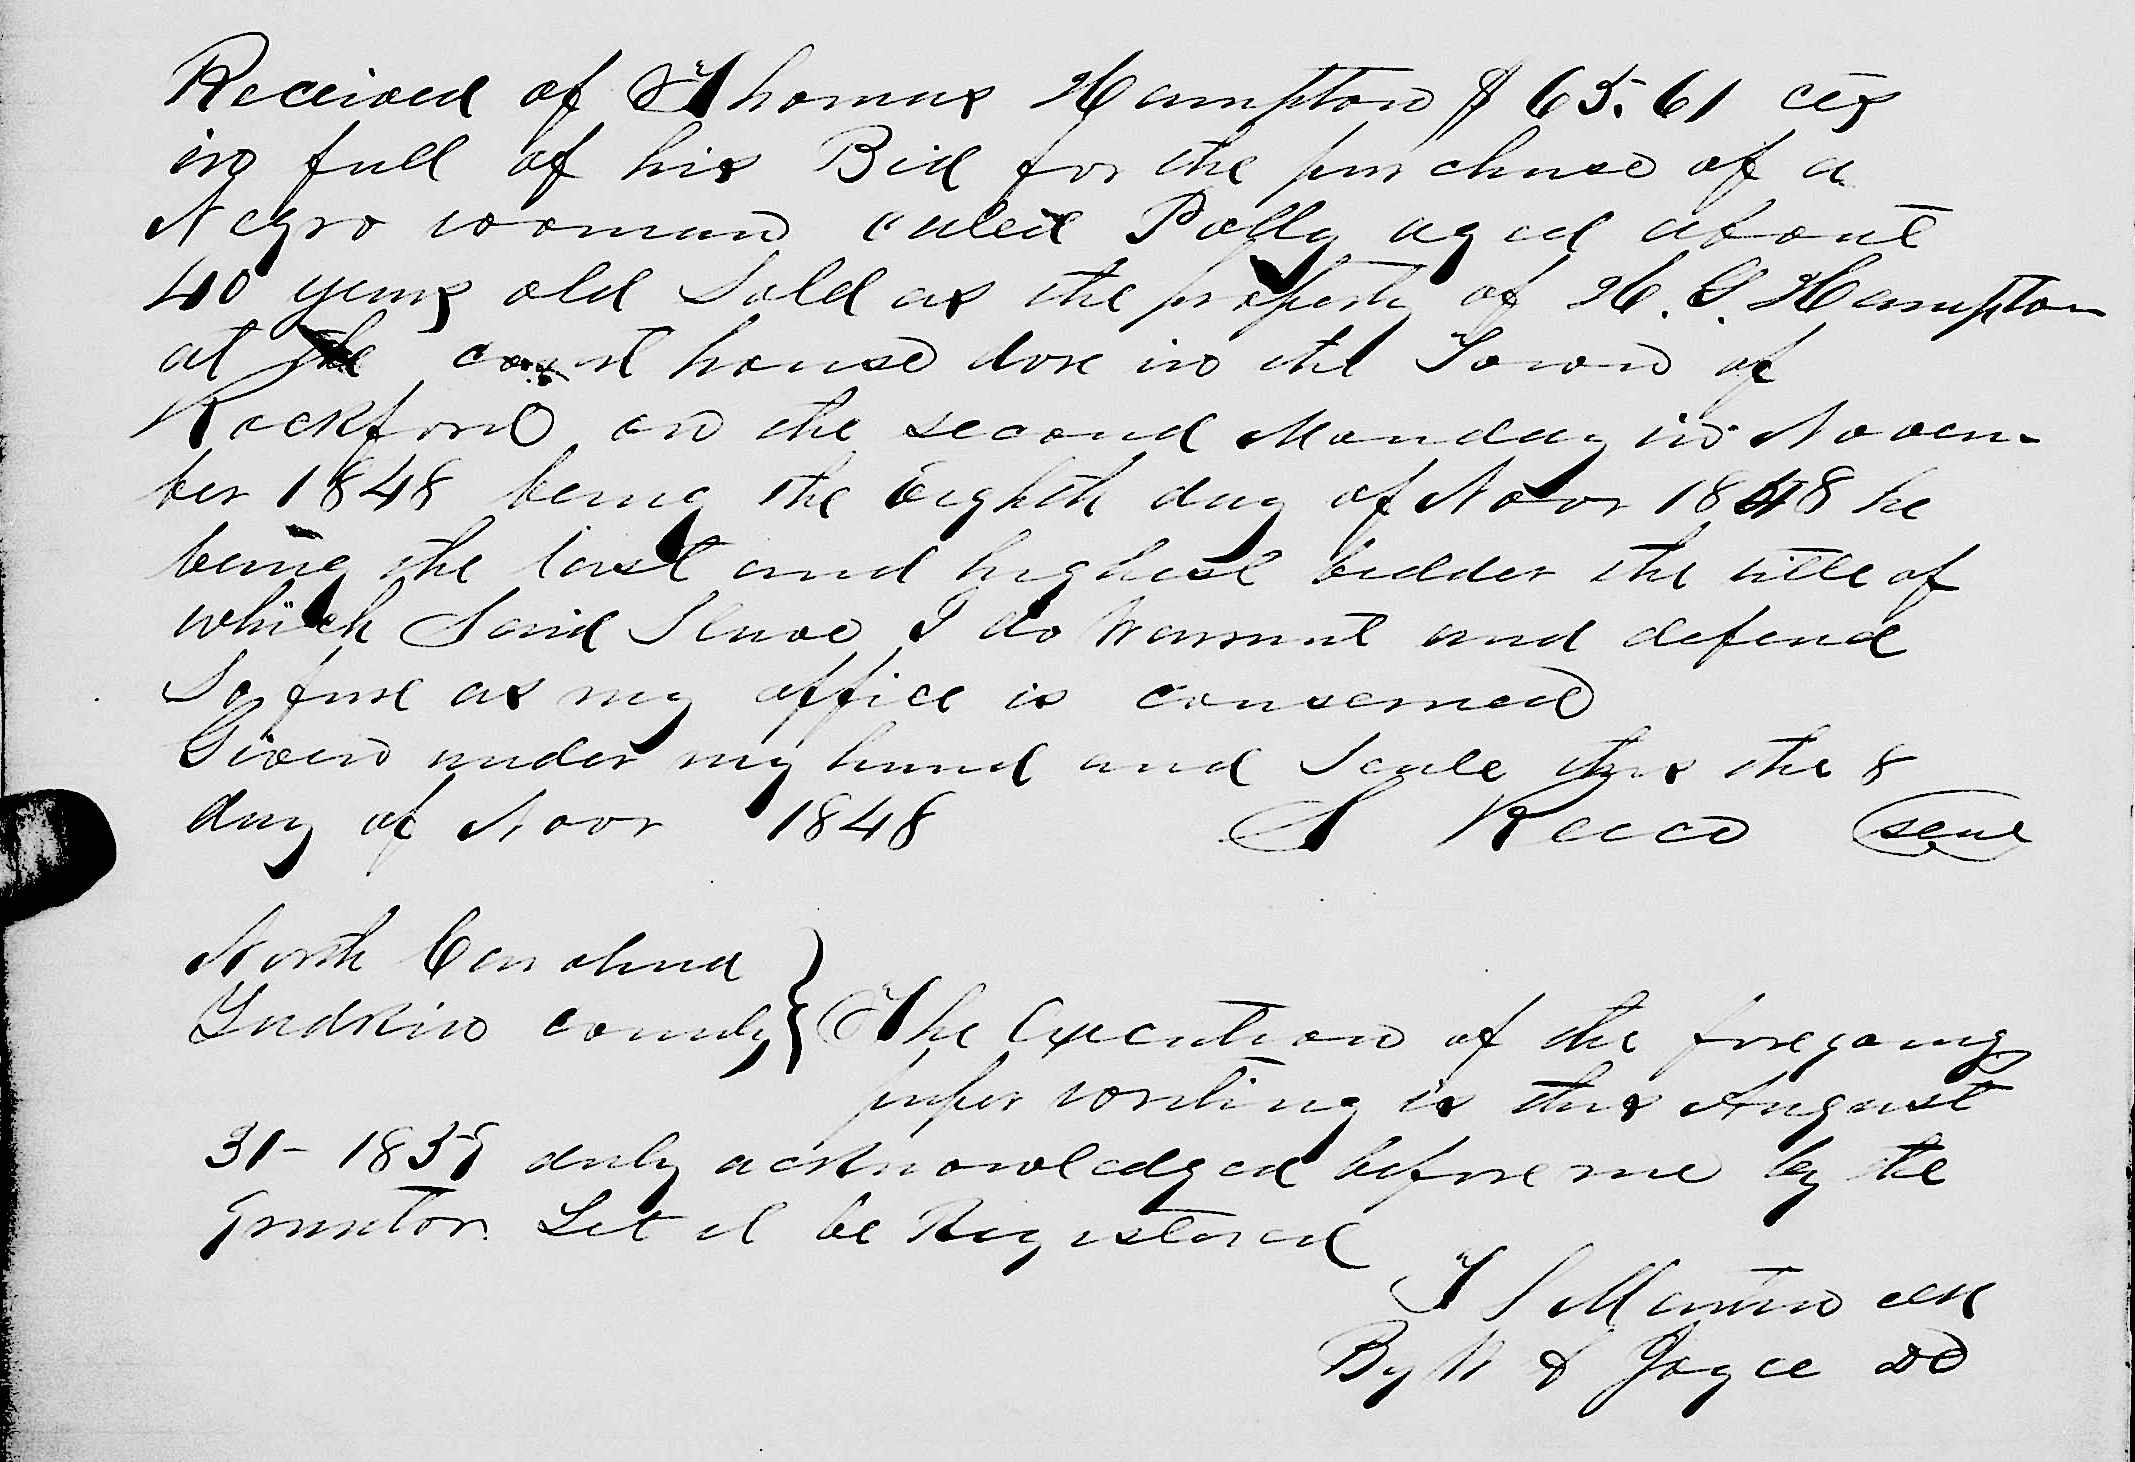 Received of Thomas Hampton $65.61 cts
in full of his Bid for the purchase of a
Negro woman caled Polly aged about
40 years old Sold as the property of H. G. Hampton
at the court house dore in the Town of
Rockford on the second Monday in Novem-
ber 1848 being the Eighth day of Novr 1848 he
being the last and highest bidder the title of
which Said Slave I do Warrant and defend
So fare as my office is conserned
Given under my hand and Seale this the 8
day of Novr 1848 S Reece seal
North Carolina
Yadkin county } The Execution of the foregoing
paper writing is this August
31- 1859 duly acknowledged before me by the
Grantor. Let it be Registered
T S Martin clk
By Joyce DC